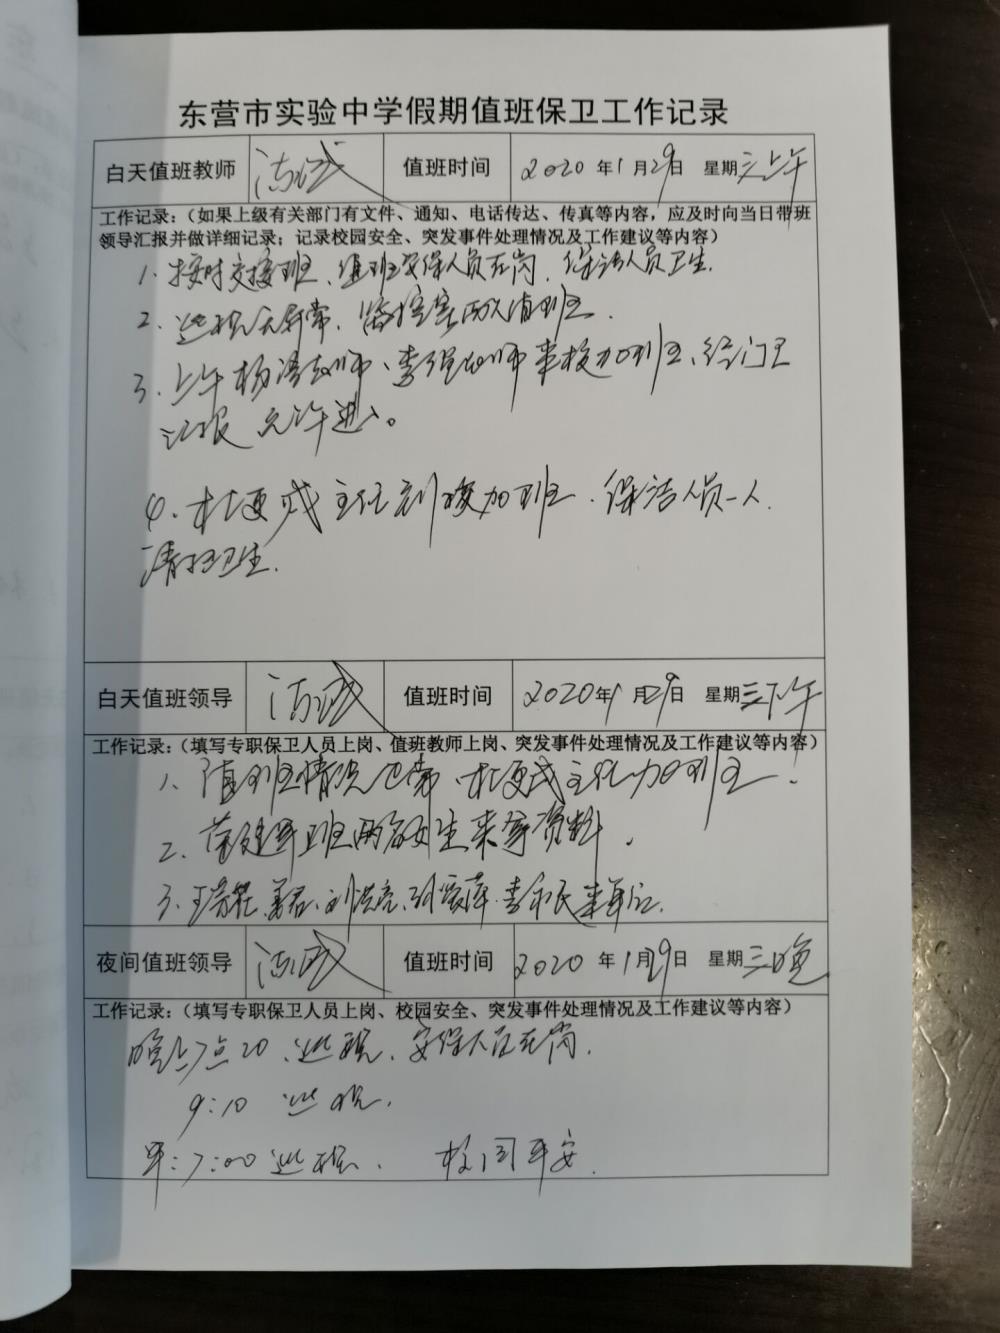 东营市实验中学假期值班保卫工作记录
白天值班教师 值班时间 2020年1月29日 星期三上午
工作记录：（如果上级有关部门有文件、通知、电话传达、传真等内容，应及时向当日带班
领导汇报并做详细记录；记录校园安全、突发事件处理情况及工作建议等内容）
1、按时交接班、值班安保人员在岗、保洁人员卫生.
2、巡视无异常、监控室两人值班.
3、上午杨涛老师、李强老师来校加班、经门卫
汇报允许进入。
4、杜更成主任到校加班.保洁人员一人
清扫卫生.
白天值班领导 值班时间 2020年1月29日 星期三下午
工作记录：（填写专职保卫人员上岗、值班教师上岗、突发事件处理情况及工作建议等内容）
1、值班情况正常、杜更成主任加班.
2、班两名女生来拿资料.
3、刘洪亮、李和民来单位.
夜间值班领导 值班时间 2020年1月29日 星期三晚
工作记录：（填写专职保卫人员上岗、校园安全、突发事件处理情况及工作建议等内容）
晚上7点20、巡视、安保人员在岗.
9:10 巡视.
早:7:00巡视. 校园平安.